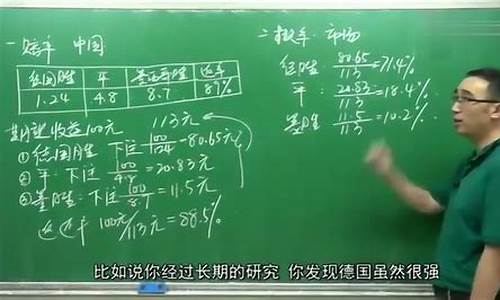 一 赔率 中国
德国胜 平 墨西哥胜 返率
1.24 4.8 8.7 89%
期望收益100元 113元
①德国胜:下注 100/1.24=80.65元
②平:下注 100/4.8=20.83元
③墨胜:下注 100/8.7=11.5元
返还率 100元/113元=88.5%
二 概率:市场
德胜 80.65/113=71.4%
平: 20.83/113=18.4%
墨胜 11.5/113=10.2%
比如说你经过长期的研究 你发现德国虽然很强